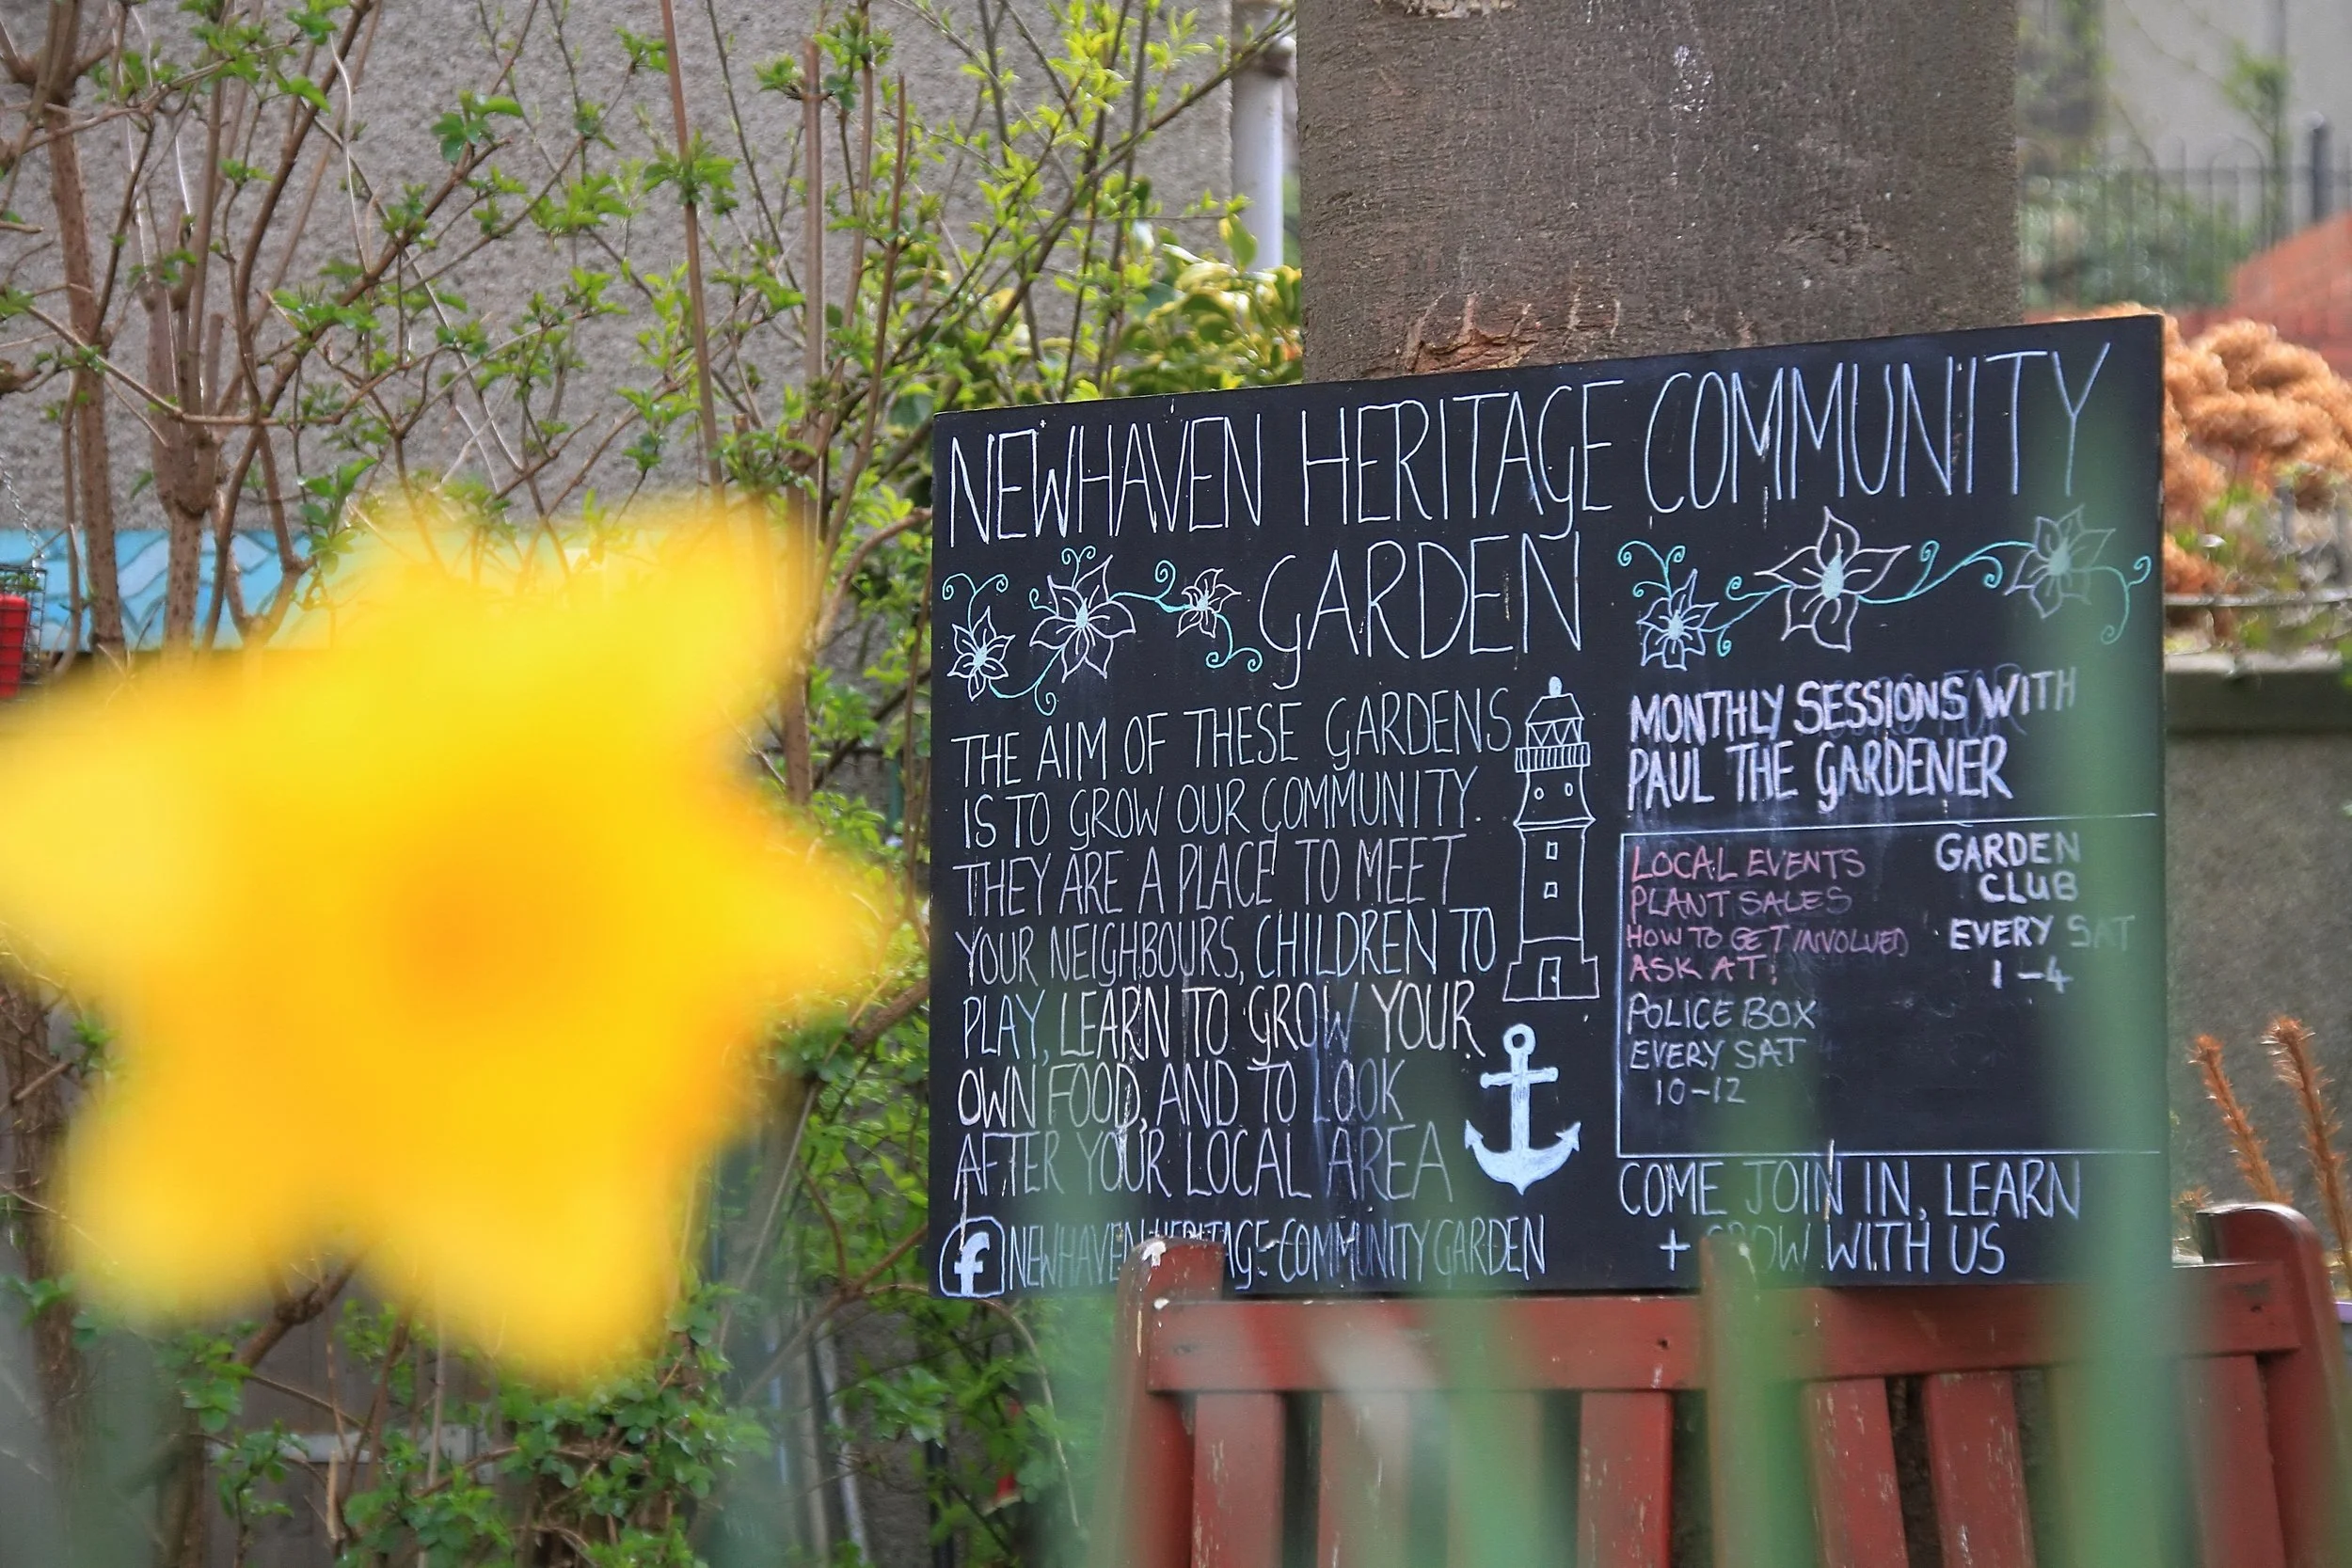 NEWHAVEN HERITAGE COMMUNITY
GARDEN
THE AIM OF THESE GARDENS
IS TO GROW OUR COMMUNITY.
THEY ARE A PLACE TO MEET
YOUR NEIGHBOURS, CHILDREN TO
PLAY, LEARN TO GROW YOUR
OWN FOOD, AND TO LOOK
AFTER YOUR LOCAL AREA
f NEWHAVEN-HERITAGE-COMMUNITY GARDEN
MONTHLY SESSIONS WITH
PAUL THE GARDENER
LOCAL EVENTS
PLANT SALES
HOW TO GET INVOLVED
ASK AT:
POLICE BOX
EVERY SAT
10-12
GARDEN
CLUB
EVERY SAT
1-4
COME JOIN IN, LEARN
+ GROW WITH US